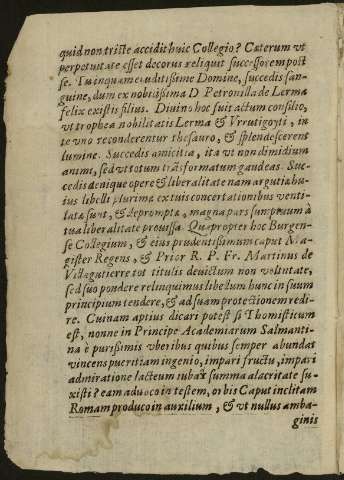 quid non triste accidit huic Collegio? Cæterum vt
perpetuitate esset decorus reliquit successorem post
se. Tu inquam eruditissime Domine, succedis san-
guine, dum ex nobilissima D Petronilla de Lerma
felix existis filius. Diuino hoc fuit actum consilio,
vt trophea nobilitatis Lerma & Vrrutigoyti, in
te vno reconderentur thesauro, & splendescerent
lumine. Succedis amicitia, ita vt non dimidium
animi, sed vt totum transformatum gaudeas. Suc-
cedis denique opere & liberalitate nam argutiæ hu-
ius libelli plurimæ ex tuis concertationibus venti-
latæ sunt, & depromptæ, magna pars sumptuum à
tua liberalitate prouissa. Quapropter hoc Burgen-
se Collegium, & eius prudentissimum caput Ma-
gister Regens, & Prior R. P. Fr. Martinus de
Villagutierre tot titulis deuictum non volūtate,
sed suo pondere relinquimus libellum hunc in suum
principium tendere, & ad suam protectionem redi-
re. Cuinam aptius dicari potest si Thomisticum
est, nonne in Principe Academiarum Salmanti-
na è purissimis vberibus quibus semper abundat
vincens pueritiam ingenio, impari fructu, impari
admiratione lacteum iubar summa alacritate su-
xisti? eam aduoco in testem, orbis Caput inclitam
Romam produco in auxilium, & vt nullus amba-
ginis